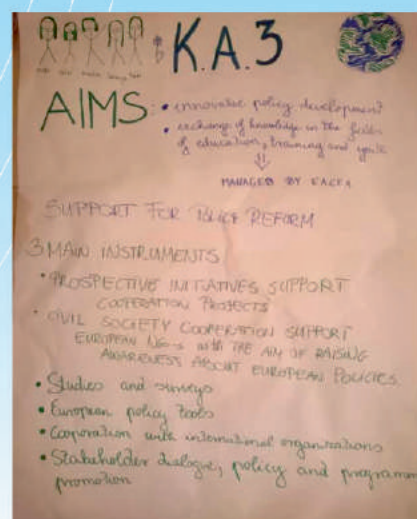 K.A.3
AIMS:
• innovative policy development
• exchange of knowledge in the fields
of education, training and youth
MANAGED BY EACEA
SUPPORT FOR POLICY REFORM
3 MAIN INSTRUMENTS
• PROSPECTIVE INITIATIVES SUPPORT
COOPERATION PROJECTS
• CIVIL SOCIETY COOPERATION SUPPORT
EUROPEAN NGOs WITH THE AIM OF RAISING
AWARENESS ABOUT EUROPEAN POLICIES
• Studies and surveys
• European policy tools
• Cooperation with international organisations
• Stakeholder dialogue, policy and programm
promotion